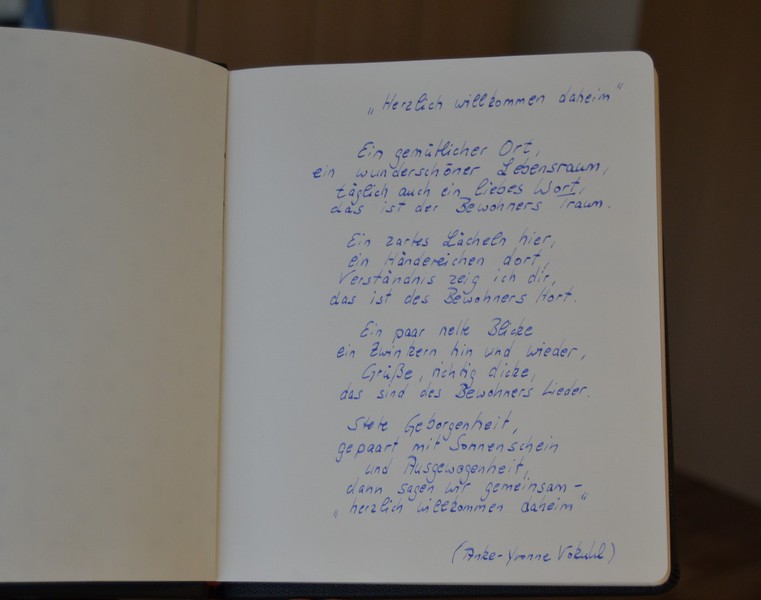 „Herzlich willkommen daheim"
Ein gemütlicher Ort,
ein wunderschöner Lebensraum,
täglich auch ein liebes Wort,
das ist der Bewohners Traum.
Ein zartes Lächeln hier,
ein Händereichen dort,
Verständnis zeig ich dir,
das ist des Bewohners Hort.
Ein paar nette Blicke
ein Zwinkern hin und wieder,
Grüße, richtig dicke,
das sind des Bewohners Lieder.
Stete Geborgenheit,
gepaart mit Sonnenschein
und Ausgewogenheit,
dann sagen wir gemeinsam –
„herzlich willkommen daheim"
(Anke-Yvonne